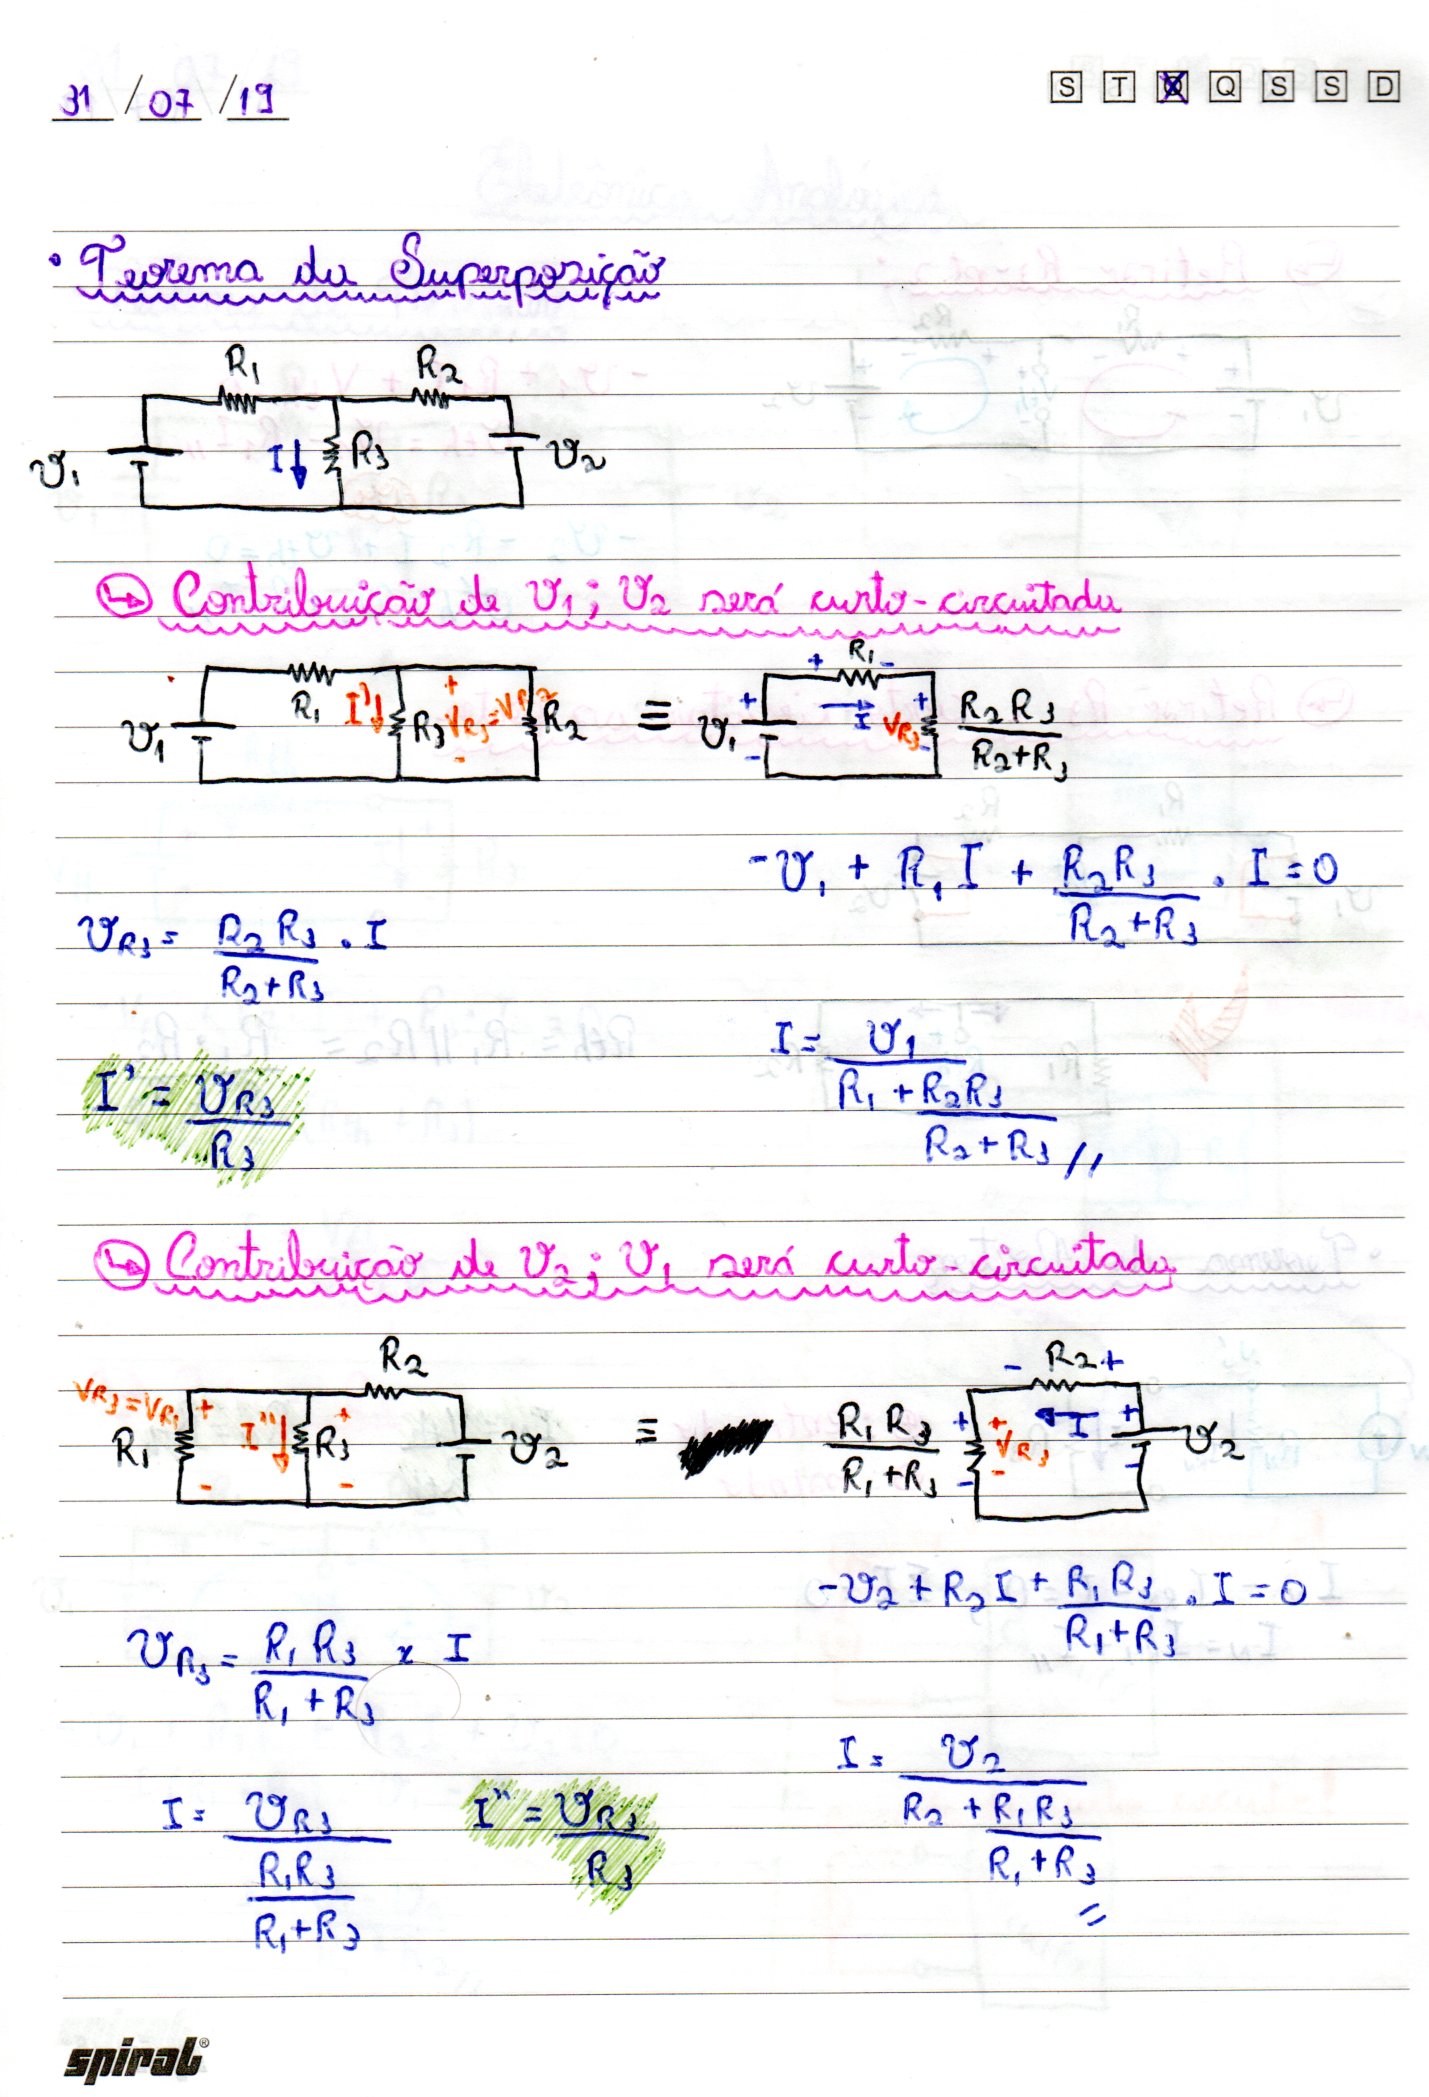 31 / 07 / 19
S T Q Q S S D
• Teorema da Superposição
R1 R2
V1 I R3 V2
↳ Contribuição de V1; V2 será curto-circuitada
+ R1 -
V1 R1 I' R3 + VR3=VR2 - R2 ≡ V1 + - I + VR3 - R2R3/(R2+R3)
-V1 + R1 I + R2R3/(R2+R3) . I = 0
VR3 = R2R3/(R2+R3) . I
I = V1/(R1 + R2R3/(R2+R3)) //
I' = VR3/R3
↳ Contribuição de V2; V1 será curto-circuitada
R2 - R2 +
VR3=VR1 + - R1 I'' R3 + - V2 ≡ R1R3/(R1+R3) + - + VR3 - I + - V2
-V2 + R2 I + R1R3/(R1+R3) . I = 0
VR3 = R1R3/(R1+R3) x I
I = V2/(R2 + R1R3/(R1+R3)) //
I = VR3/(R1R3/(R1+R3)) I'' = VR3/R3
spiral®